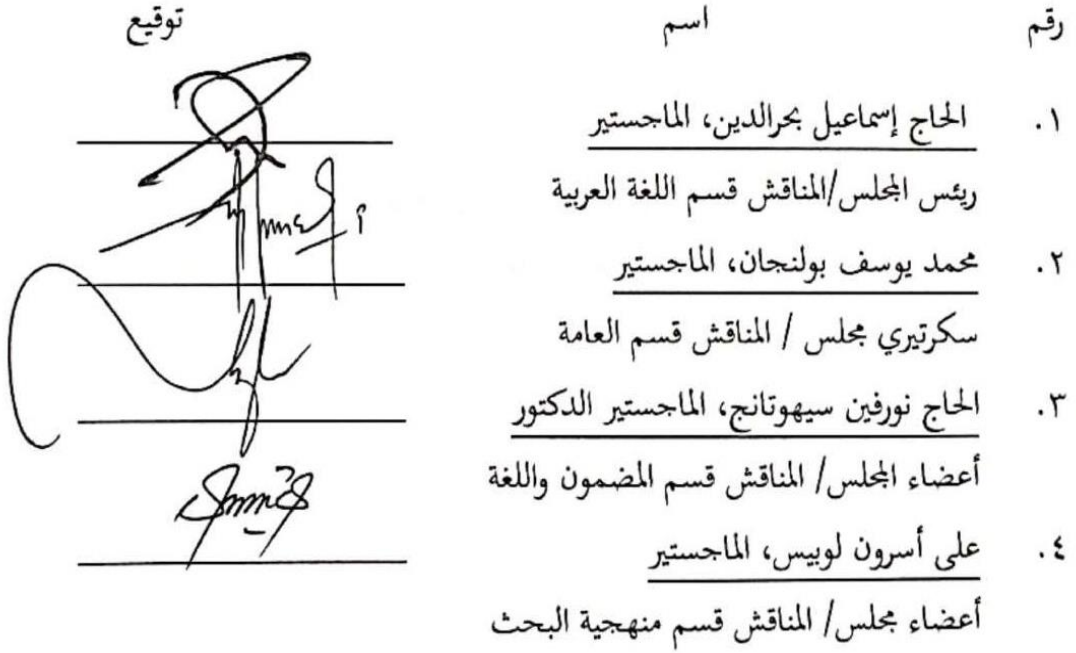 رقم اسم توقيع
١. الحاج إسماعيل بحرالدين، الماجستير
ريئس المجلس/المناقش قسم اللغة العربية
٢. محمد يوسف بولنجان، الماجستير
سكرتيري مجلس / المناقش قسم العامة
٣. الحاج نورفين سيهوتانج، الماجستير الدكتور
أعضاء المجلس/ المناقش قسم المضمون واللغة
٤. على أسرون لوبيس، الماجستير
أعضاء مجلس/ المناقش قسم منهجية البحث